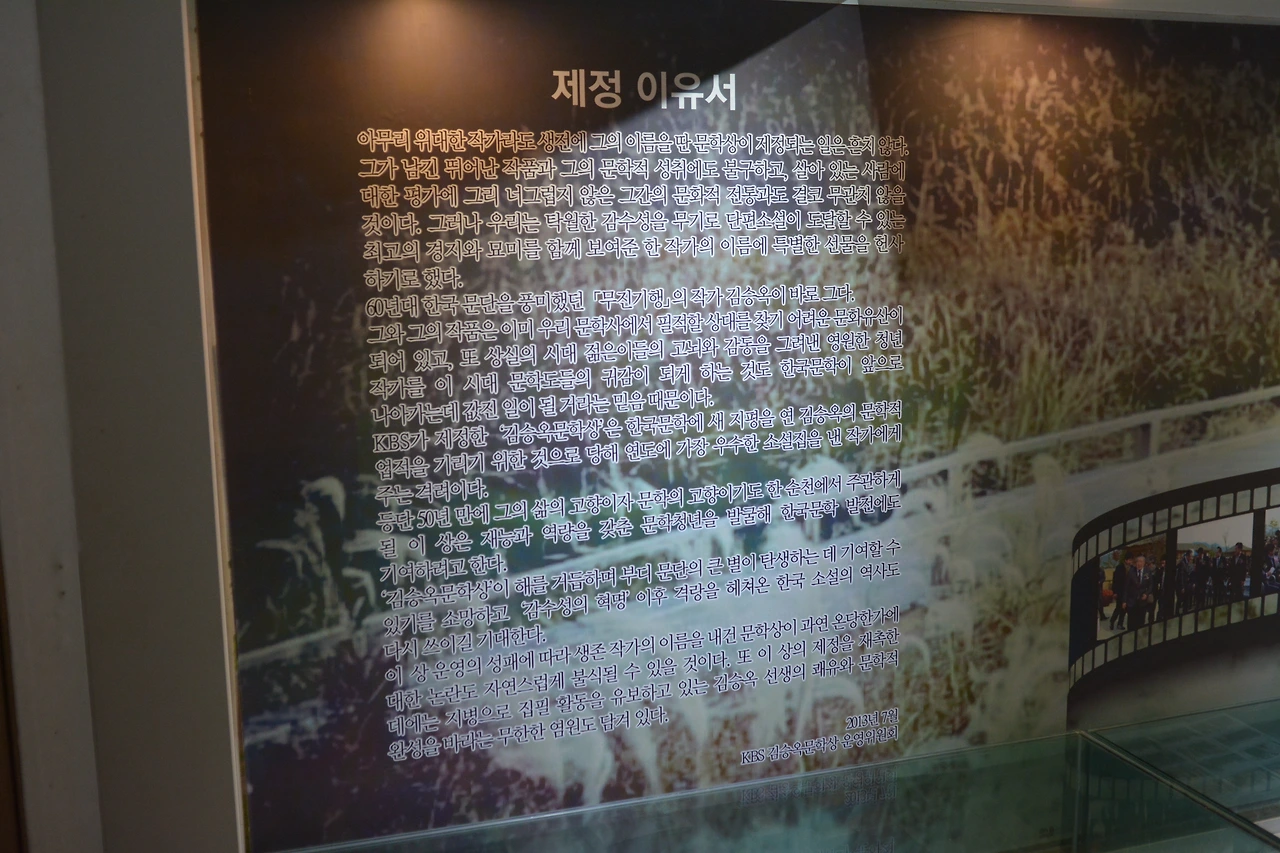 제정 이유서
아무리 위대한 작가라도 생전에 그의 이름을 딴 문학상이 제정되는 일은 흔치 않다.
그가 남긴 뛰어난 작품과 그의 문학적 성취에도 불구하고, 살아 있는 사람에
대한 평가에 그리 너그럽지 않은 그간의 문화적 전통과도 결코 무관치 않을
것이다. 그러나 우리는 탁월한 감수성을 무기로 단편소설이 도달할 수 있는
최고의 경지와 묘미를 함께 보여준 한 작가의 이름에 특별한 선물을 헌사
하기로 했다.
60년대 한국 문단을 풍미했던 「무진기행」의 작가 김승옥이 바로 그다.
그와 그의 작품은 이미 우리 문학사에서 필적할 상대를 찾기 어려운 문화유산이
되어 있고, 또 상실의 시대 젊은이들의 고뇌와 감동을 그려낸 영원한 청년
작가를 이 시대 문학도들의 귀감이 되게 하는 것도 한국문학이 앞으로
나아가는데 값진 일이 될 거라는 믿음 때문이다.
KBS가 제정한 '김승옥문학상'은 한국문학에 새 지평을 연 김승옥의 문학적
업적을 기리기 위한 것으로 당해 연도에 가장 우수한 소설집을 낸 작가에게
주는 격려이다.
등단 50년 만에 그의 삶의 고향이자 문학의 고향이기도 한 순천에서 주관하게
될 이 상은 재능과 역량을 갖춘 문학청년을 발굴해 한국문학 발전에도
기여하려고 한다.
'김승옥문학상'이 해를 거듭하며 부디 문단의 큰 별이 탄생하는 데 기여할 수
있기를 소망하고 '감수성의 혁명' 이후 격랑을 헤쳐온 한국 소설의 역사도
다시 쓰이길 기대한다.
이 상 운영의 성패에 따라 생존 작가의 이름을 내건 문학상이 과연 온당한가에
대한 논란도 자연스럽게 불식될 수 있을 것이다. 또 이 상의 제정을 재촉한
데에는 지병으로 집필 활동을 유보하고 있는 김승옥 선생의 쾌유와 문학적
완성을 바라는 무한한 염원도 담겨 있다.
2013년 7월
KBS 김승옥문학상 운영위원회